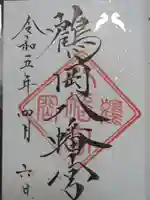 鶴岡八幡宮
令和五年四月六日